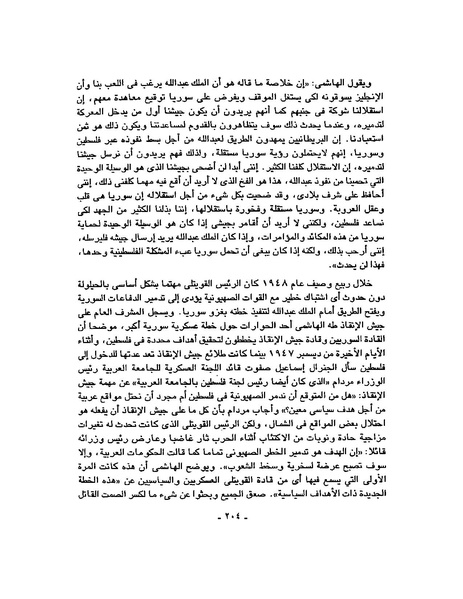 ويقول الهاشمى: «إن خلاصة ما قاله هو أن الملك عبدالله يرغب فى اللعب بنا وأن
الإنجليز يسوقونه لكى يستغل الموقف ويفرض على سوريا توقيع معاهدة معهم، إن
استقلالنا شوكة فى جنبهم كما أنهم يريدون أن يكون جيشنا أول من يدخل المعركة
لتدميره، وعندما يحدث ذلك سوف يتظاهرون بالقدوم لمساعدتنا ويكون ذلك هو ثمن
استعبادنا. إن البريطانيين يمهدون الطريق لعبدالله من أجل بسط نفوذه عبر فلسطين
وسوريا، إنهم لايحتملون رؤية سوريا مستقلة، ولذلك فهم يريدون أن نرسل جيشنا
لتدميره، إن الاستقلال كلفنا الكثير. إننى أبدا لن أضحى بجيشنا الذى هو الوسيلة الوحيدة
التى تحمينا من نفوذ عبدالله، هذا هو الفخ الذى لا أريد أن أقع فيه مهما كلفنى ذلك، إننى
أحافظ على شرف بلادى، وقد ضحيت بكل شىء من أجل استقلاله إن سوريا هى قلب
وعقل العروبة. وسوريا مستقلة وفخورة باستقلالها، إننا بذلنا الكثير من الجهد لكى
نساعد فلسطين، ولكننى لا أريد أن أقامر بجيشى إذا كان هو الوسيلة الوحيدة لحماية
سوريا من هذه المكائد والمؤامرات، وإذا كان الملك عبدالله يريد إرسال جيشه فليرسله،
إننى أرحب بذلك، ولكنه إذا كان يبغى أن تحمل سوريا عبء المشكلة الفلسطينية وحدها،
فهذا لن يحدث».
خلال ربيع وصيف عام ١٩٤٨ كان الرئيس القوتلى مهتما بشكل أساسى بالحيلولة
دون حدوث أى اشتباك خطير مع القوات الصهيونية يؤدى إلى تدمير الدفاعات السورية
ويفتح الطريق أمام الملك عبدالله لتنفيذ خطته بغزو سوريا. ويسجل المشرف العام على
جيش الإنقاذ طه الهاشمى أحد الحوارات حول خطة عسكرية سورية أكبر، موضحا أن
القادة السوريين وقادة جيش الإنقاذ يخططون لتحقيق أهداف محددة فى فلسطين، وأثناء
الأيام الأخيرة من ديسمبر ١٩٤٧ بينما كانت طلائع جيش الإنقاذ تعد عدتها للدخول إلى
فلسطين سأل الجنرال إسماعيل صفوت قائد اللجنة العسكرية للجامعة العربية رئيس
الوزراء مردام «الذى كان أيضا رئيس لجنة فلسطين بالجامعة العربية» عن مهمة جيش
الإنقاذ: «هل من المتوقع أن ندمر الصهيونية فى فلسطين أم مجرد أن نحتل مواقع عربية
من أجل هدف سياسى معين؟» وأجاب مردام بأن كل ما على جيش الإنقاذ أن يفعله هو
احتلال بعض المواقع فى الشمال، ولكن الرئيس القوتلى الذى كانت تحدث له تغيرات
مزاجية حادة ونوبات من الاكتئاب أثناء الحرب ثار غاضبا وعارض رئيس وزرائه
قائلا: «إن الهدف هو تدمير الخطر الصهيونى تماما كما قالت الحكومات العربية، وإلا
سوف تصبح عرضة لسخرية وسخط الشعوب». ويوضح الهاشمى أن هذه كانت المرة
الأولى التي يسمع فيها أى من قادة القوتلى العسكريين والسياسيين عن «هذه الخطة
الجديدة ذات الأهداف السياسية». صعق الجميع وبحثوا عن شىء ما لكسر الصمت القاتل
- ٢٠٤ -